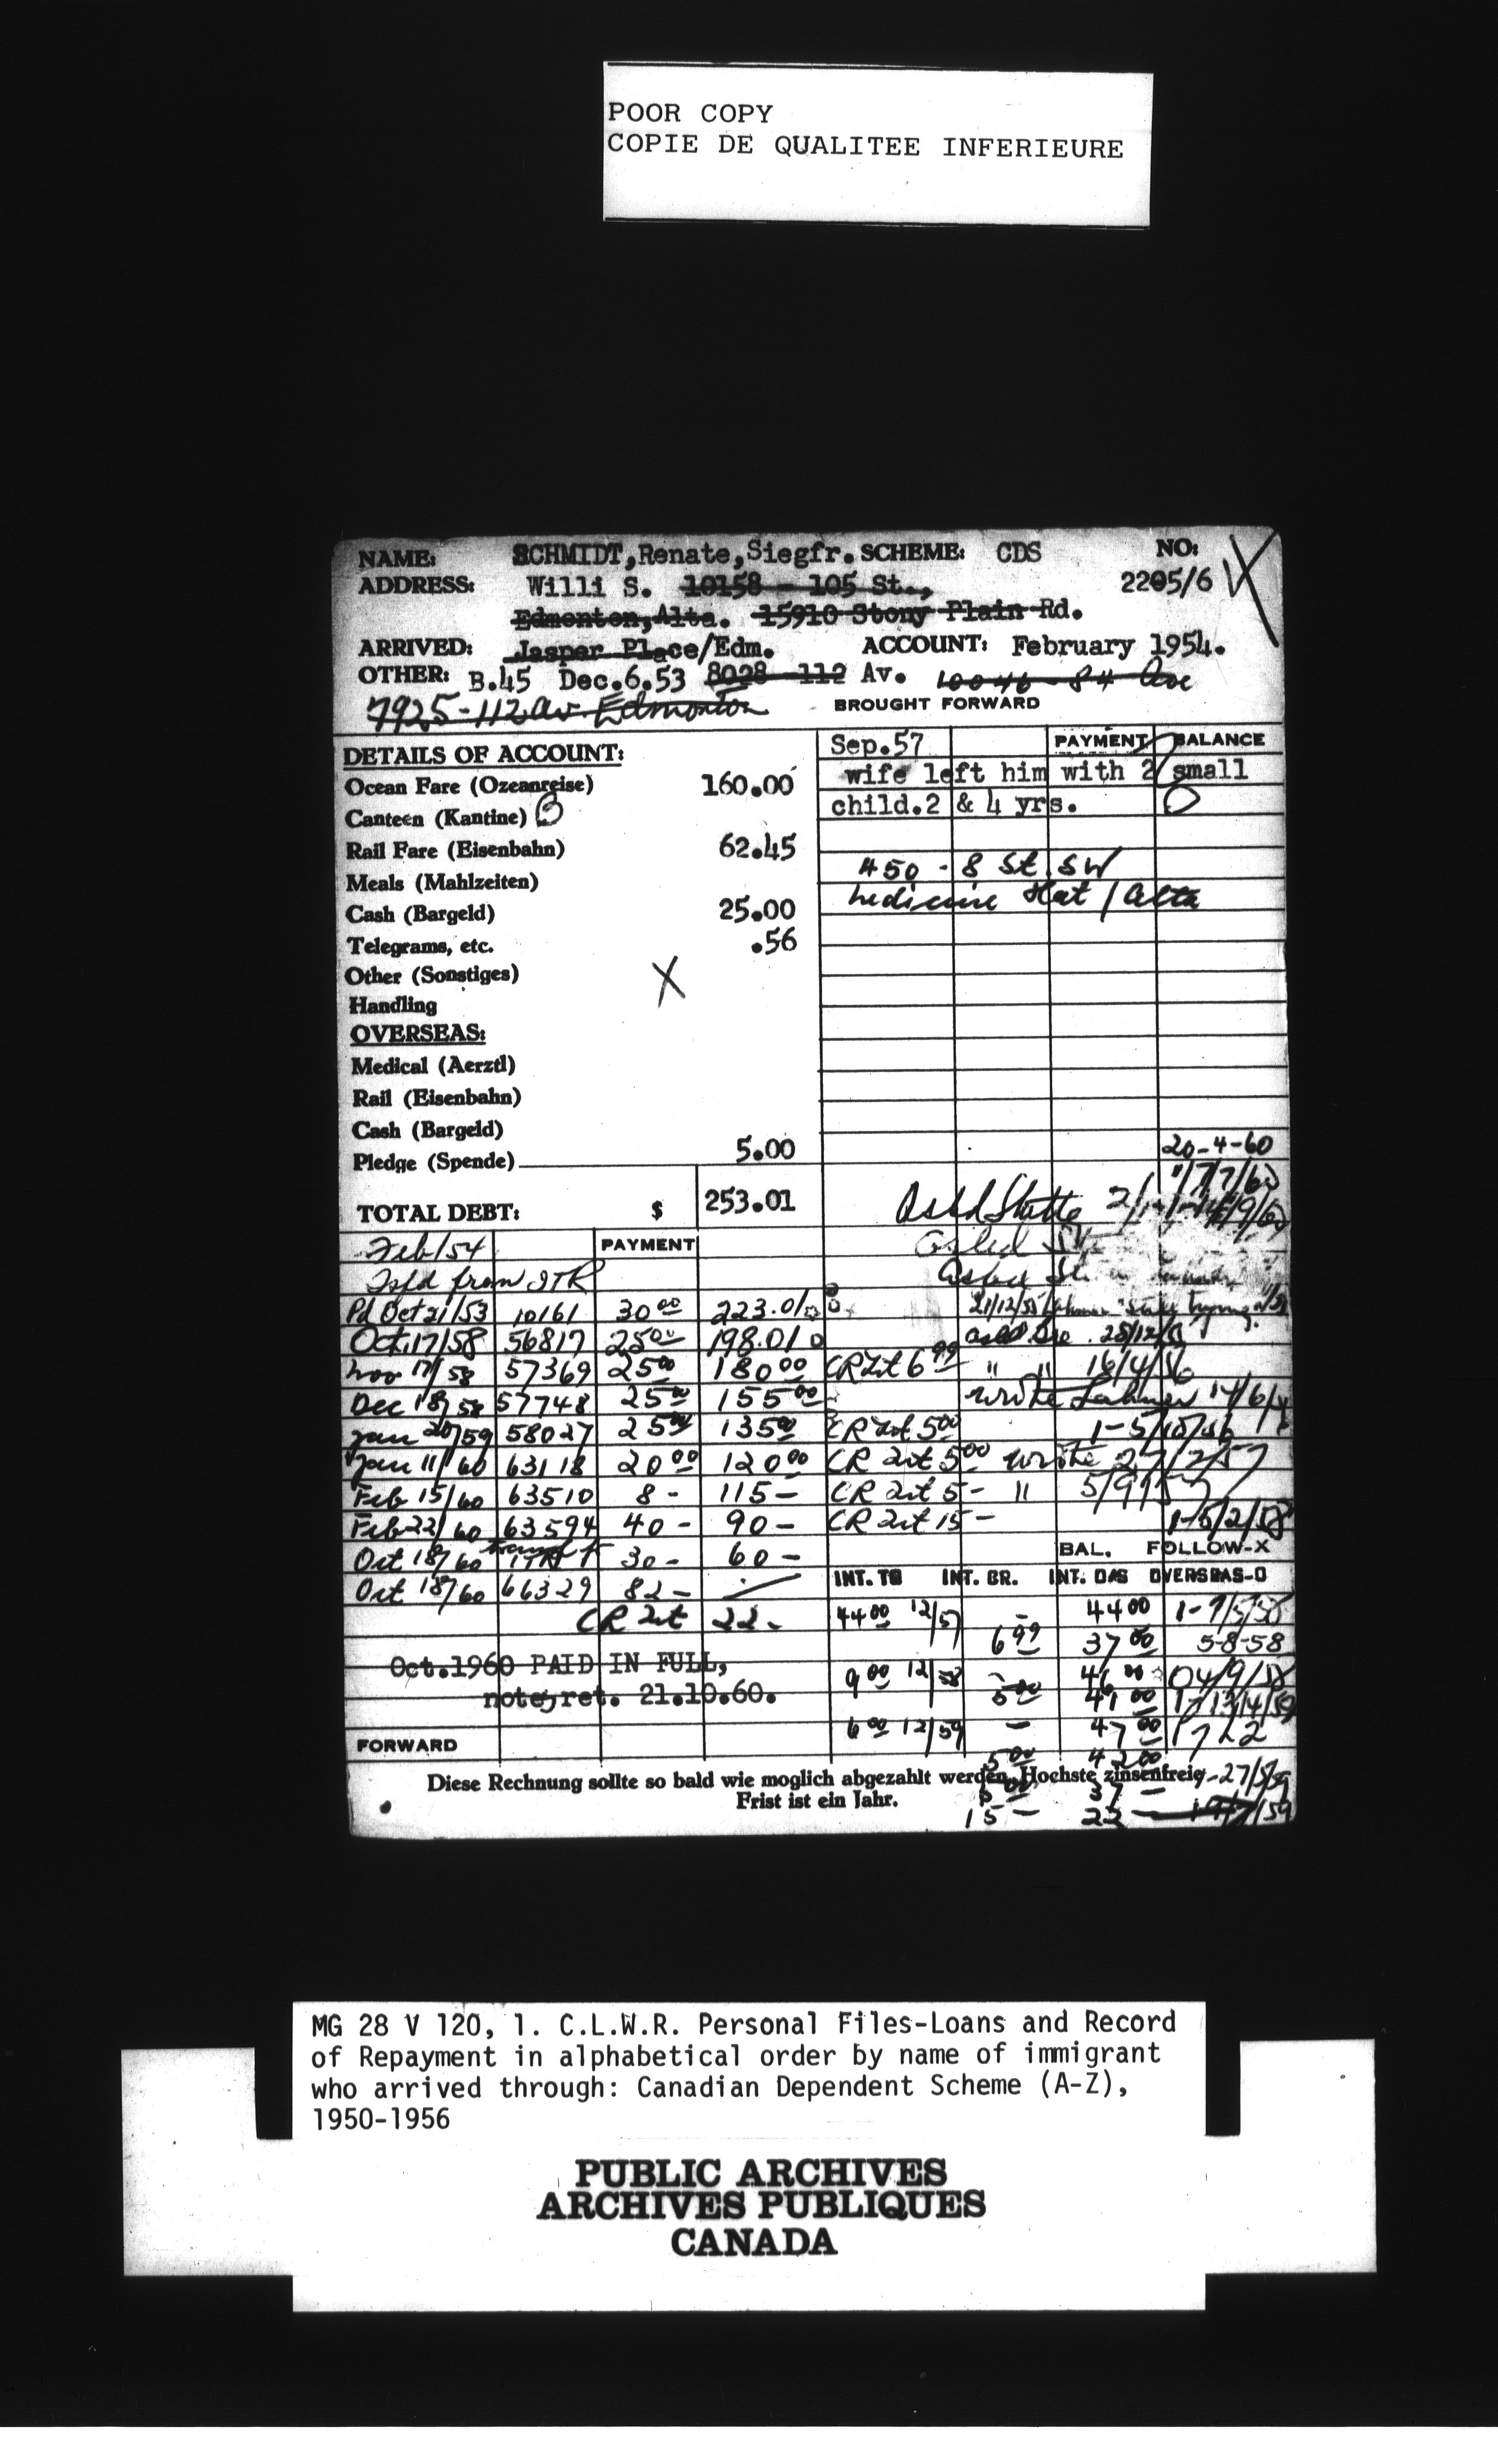 POOR COPY
COPIE DE QUALITEE INFERIEURE
NAME: SCHMIDT,Renate,Siegfr. SCHEME: CDS NO:
ADDRESS: Willi S. 10158 - 105 St., 2205/6 X
Edmonton,Alta. 15910 Stony Plain Rd.
ARRIVED: Jasper Place/Edm. ACCOUNT: February 1954.
OTHER: B.45 Dec.6.53 8028 - 112 Av. 10046 - 84 Ave
7925 - 112 av Edmonton BROUGHT FORWARD
DETAILS OF ACCOUNT: Sep.57 PAYMENT BALANCE
Ocean Fare (Ozeanreise) 160.00 wife left him with 2 small
Canteen (Kantine) B child.2 & 4 yrs.
Rail Fare (Eisenbahn) 62.45
Meals (Mahlzeiten) 450 - 8 St. SW
Cash (Bargeld) 25.00 Medicine Hat / Alta
Telegrams, etc. .56
Other (Sonstiges) X
Handling
OVERSEAS:
Medical (Aerztl)
Rail (Eisenbahn)
Cash (Bargeld)
Pledge (Spende) 5.00 20-4-60
TOTAL DEBT: $ 253.01
Feb/54 PAYMENT
Tsfd from ITR
Pd Oct 21/53 10161 30 00 223.01 21/12/55
Oct.17/58 56817 25 00 198.01
Nov 17/58 57369 25 00 180 00 CR Int 6 99 " " 16/4/56
Dec 18/58 57748 25 00 155 00 wrote
Jan 20/59 58027 25 00 135 00 CR Int 5 00 1-5/10/56
Jan 11/60 63118 20 00 120 00 CR Int 5 00 wrote 27/2/57
Feb 15/60 63510 8 - 115 - CR Int 5 - " 5/9/57
Feb 22/60 63594 40 - 90 - CR Int 15 - 1-5/2/58
Oct 18/60 30 - 60 - BAL. FOLLOW-X
Oct 18/60 66329 82 - INT. TO INT. BR. INT. OAS OVERSEAS-O
CR Int 22 - 44 00 12/57 - 44 00
6 99 37 00 5-8-58
Oct.1960 PAID IN FULL, 9 00 12/58 46 00 04/9/58
note ret. 21.10.60. 5 00 41 00
6 00 12/59 - 47 00
FORWARD 5 00 42 00
Diese Rechnung sollte so bald wie moglich abgezahlt werden. Hochste zinsenfreie 27/5/59
Frist ist ein Jahr. 37 -
15 - 22 -
MG 28 V 120, 1. C.L.W.R. Personal Files-Loans and Record
of Repayment in alphabetical order by name of immigrant
who arrived through: Canadian Dependent Scheme (A-Z),
1950-1956
PUBLIC ARCHIVES
ARCHIVES PUBLIQUES
CANADA